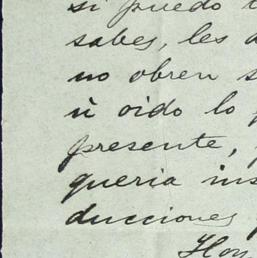 si puedo
sabes, les
no obren
ú oido lo
presente,
queria ins
ducciones
Hoy